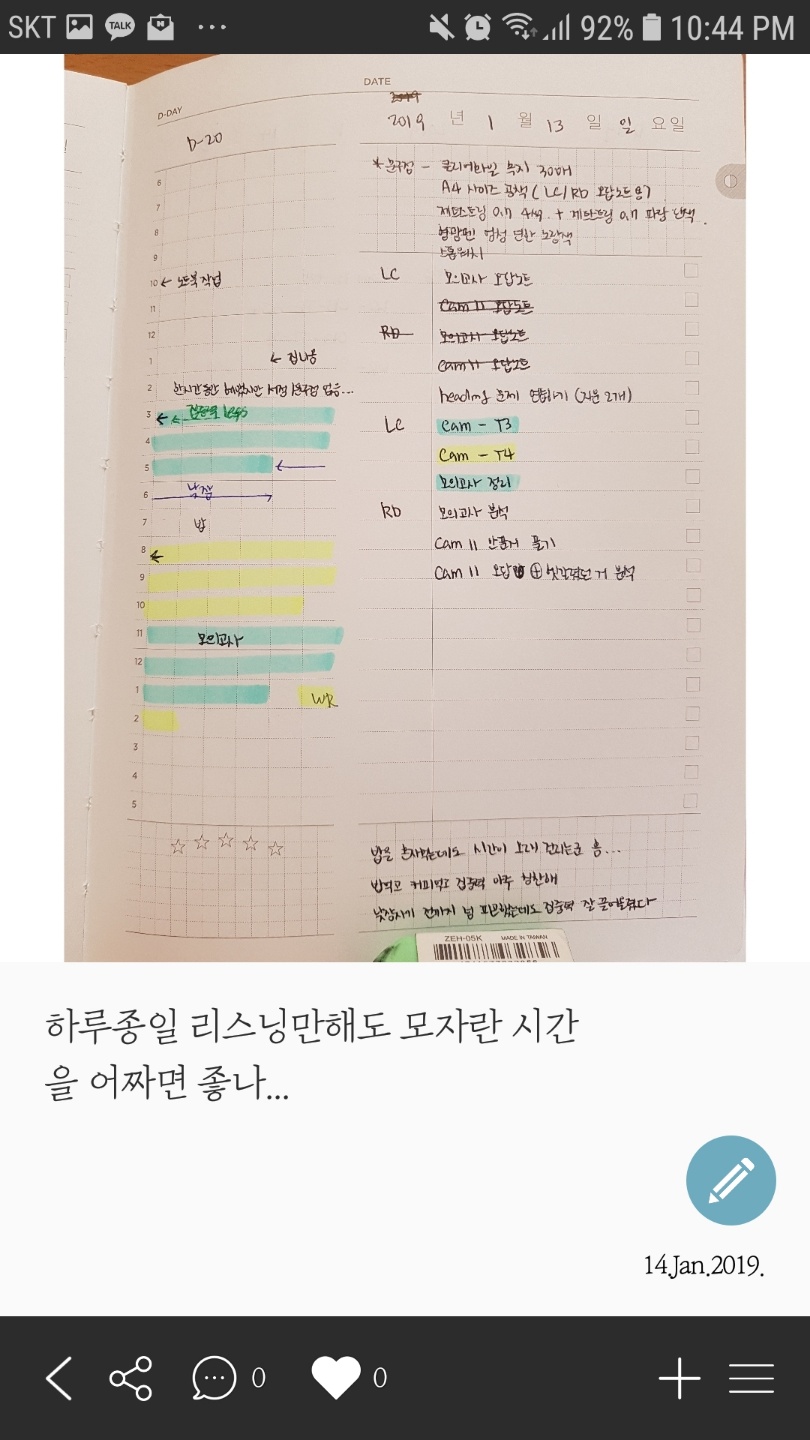 SKT TALK 92% 10:44 PM
D-DAY
D-20
DATE
2019 년 1 월 13 일 일 요일
* 문구점 - 클리어파일 속지 30매
A4 사이즈 공책 ( LC/RD 오답노트용?
제트스트림 0.7 4색. + 제트스트림 0.7 파랑 단색.
형광펜 엄청 연한 노랑색
스톱워치
6
7
8
9
10 ← 노트북 작업
11
12
1 ← 집나옴
2 한시간동안 헤맸지만 서점 문구점 없음...
3
4
5
6 낮잠
7 밥
8
9
10
11 모의고사
12
1 WR
2
3
4
5
LC 모의고사 오답노트
Cam 11 오답노트
RD 모의고사 오답노트
Cam 11 오답노트
heading 문제 연습하기 (지문 2개)
LC Cam - T3
Cam - T4
모의고사 정리
RD 모의고사 분석
Cam 11 안푼거 풀기
Cam 11 오답 + 헷갈렸던 거 분석
밥을 혼자먹는데도 시간이 오래 걸리는군 흠...
밥먹고 커피먹고 집중력 아주 칭찬해
낮잠자기 전까지 넘 피곤했는데도 집중력 잘 끌어올렸다
ZEH-05K MADE IN TAIWAN
하루종일 리스닝만해도 모자란 시간
을 어짜면 좋나...
14.Jan.2019.
0 0